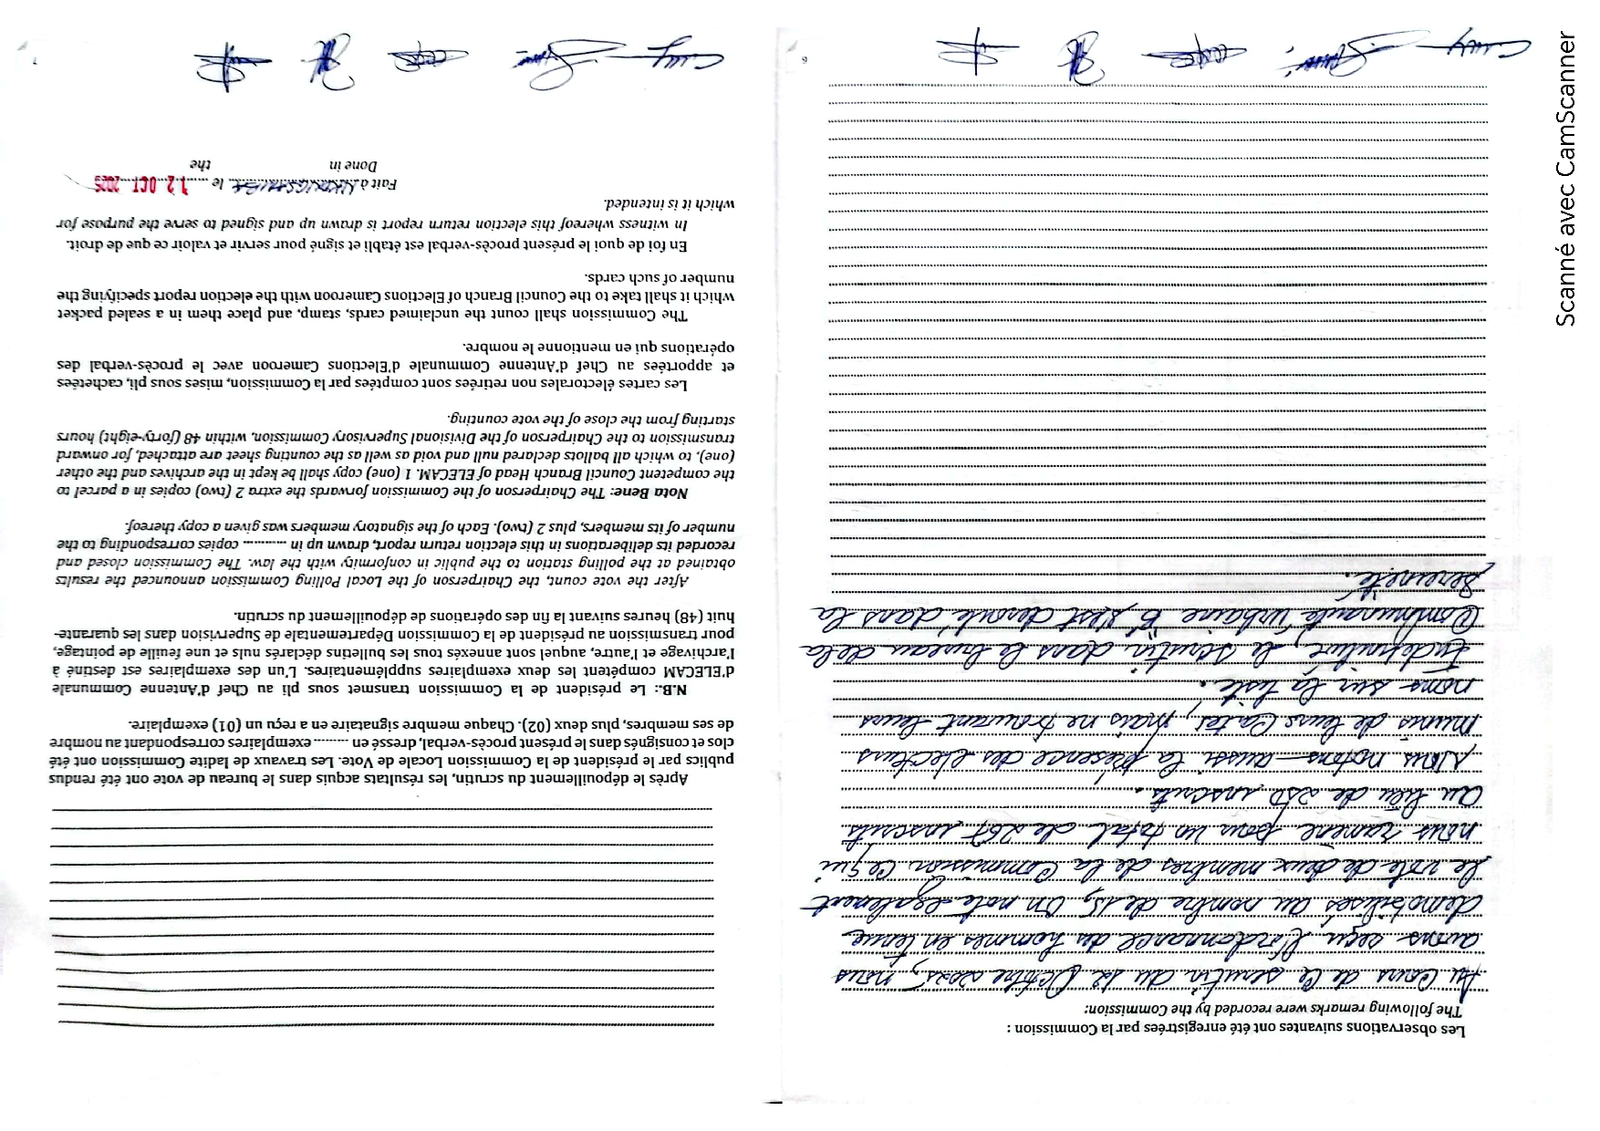 Les observations suivantes ont été enregistrées par la Commission :
The following remarks were recorded by the Commission:
Au cours de ce scrutin du 12 Octobre 2025, nous
avons reçu l'ordonnance des hommes en tenue
demobilisés au nombre de 15, on note également
le vote de deux membres de la Commission. Ce qui
nous ramène pour un total de 267 inscrits
au lieu de 250 inscrits.
Nous notons aussi la présence des électeurs
munis de leurs cartes, mais ne trouvant leurs
noms sur la liste.
le scrutin dans le bureau de la
Communauté Urbaine B s'est déroulé dans la
serenité.
6
Après le dépouillement du scrutin, les résultats acquis dans le bureau de vote ont été rendus
publics par le président de la Commission Locale de Vote. Les travaux de ladite Commission ont été
clos et consignés dans le présent procès-verbal, dressé en ......... exemplaires correspondant au nombre
de ses membres, plus deux (02). Chaque membre signataire en a reçu un (01) exemplaire.
N.B.: Le président de la Commission transmet sous pli au Chef d'Antenne Communale
d'ELECAM compétent les deux exemplaires supplémentaires. L'un des exemplaires est destiné à
l'archivage et l'autre, auquel sont annexés tous les bulletins déclarés nuls et une feuille de pointage,
pour transmission au président de la Commission Départementale de Supervision dans les quarante-
huit (48) heures suivant la fin des opérations de dépouillement du scrutin.
After the vote count, the Chairperson of the Local Polling Commission announced the results
obtained at the polling station to the public in conformity with the law. The Commission closed and
recorded its deliberations in this election return report, drawn up in ........... copies corresponding to the
number of its members, plus 2 (two). Each of the signatory members was given a copy thereof.
Nota Bene: The Chairperson of the Commission forwards the extra 2 (two) copies in a parcel to
the competent Council Branch Head of ELECAM. 1 (one) copy shall be kept in the archives and the other
(one), to which all ballots declared null and void as well as the counting sheet are attached, for onward
transmission to the Chairperson of the Divisional Supervisory Commission, within 48 (forty-eight) hours
starting from the close of the vote counting.
Les cartes électorales non retirées sont comptées par la Commission, mises sous pli, cachetées
et apportées au Chef d'Antenne Communale d'Elections Cameroon avec le procès-verbal des
opérations qui en mentionne le nombre.
The Commission shall count the unclaimed cards, stamp, and place them in a sealed packet
which it shall take to the Council Branch of Elections Cameroon with the election report specifying the
number of such cards.
En foi de quoi le présent procès-verbal est établi et signé pour servir et valoir ce que de droit.
In witness whereof this election return report is drawn up and signed to serve the purpose for
which it is intended.
Fait à NKONGSAMBA le 12 OCT 2025
Done in the
7
Scanné avec CamScanner